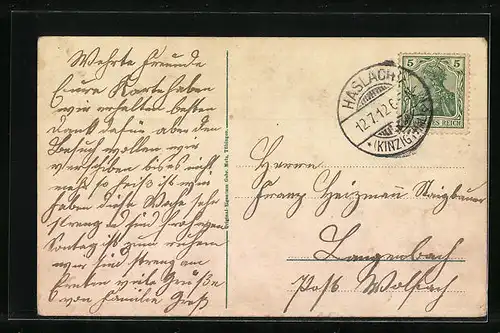 Wehrte Freunde
Eure Karte haben
wir erhalten besten
Dank dafür aber den
Besuch wollen wir
verschiben bis es nicht
mehr so heiß ist wir
haben diese Woche sehr
streng und sind froh wen
Sonntag ist zum ruhen
wir sind streng am
Ernten viele Grüße
von Familie Groß
Original-Eigentum Gebr. Metz, Tübingen.
HASLACH
12.7.12.6-
*(KINZIGTHAL)
5 5
DEUTSCHES REICH
Herrn
Franz Heizmann Staigbauer
Langenbach
Post Wolfach